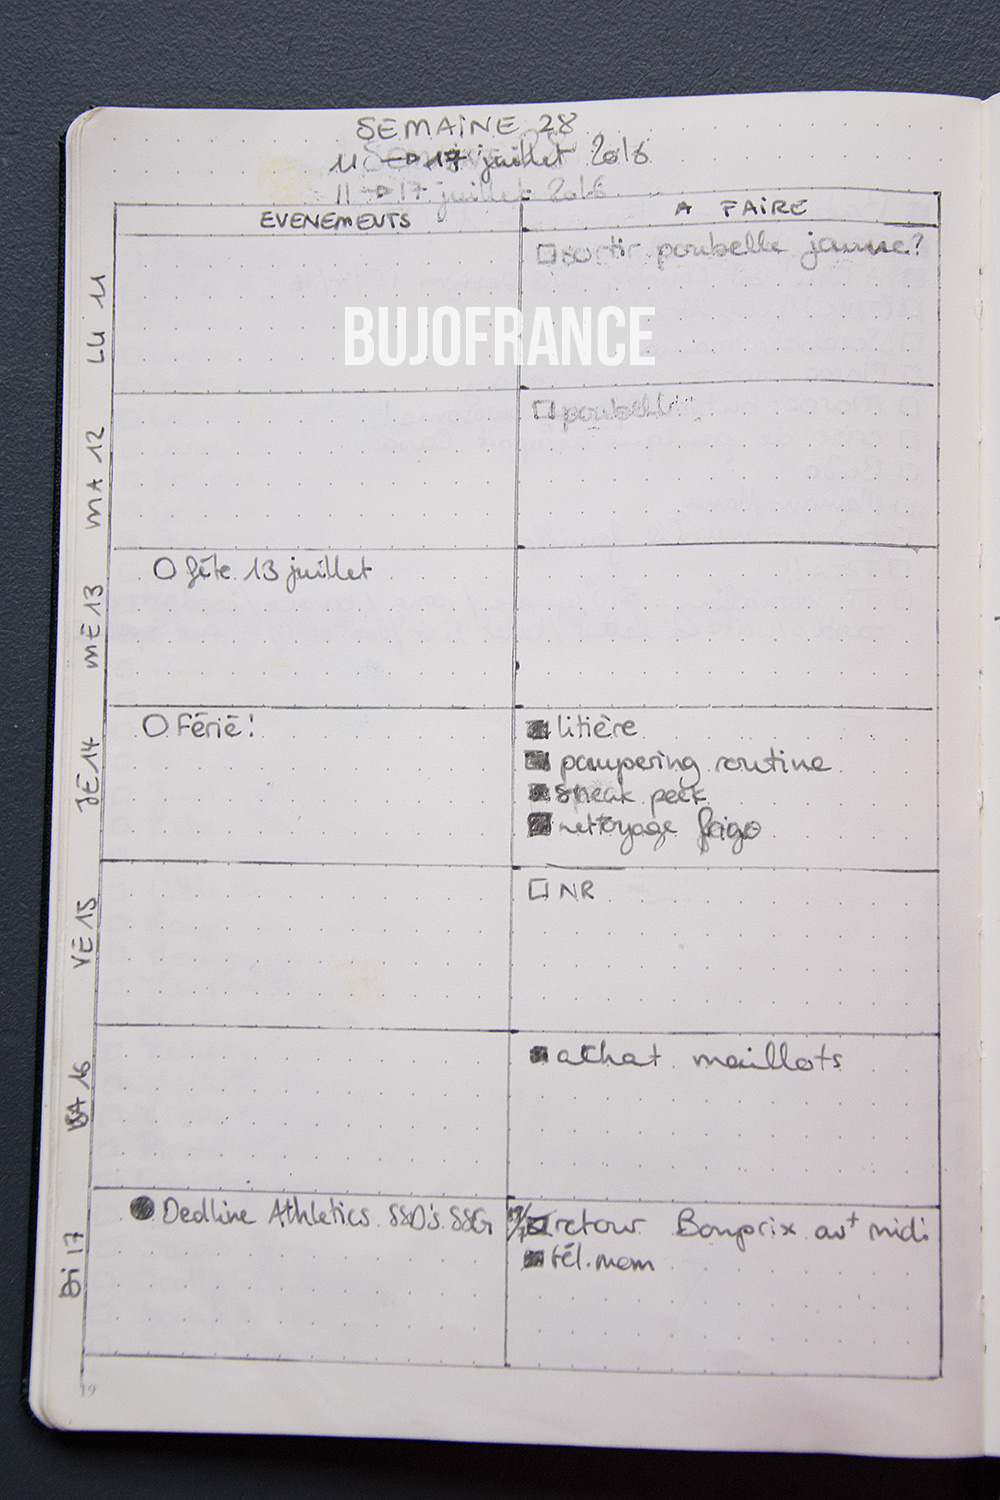 SEMAINE 28
11 → 17 juillet 2016
11 → 17 juillet 2016
EVENEMENTS
A FAIRE
LU 11
sortir poubelle jaune?
BUJOFRANCE
MA 12
poubelle
ME 13
fête 13 juillet
JE 14
Férié!
litière
pampering routine
sneak peek
nettoyage frigo
VE 15
NR
SA 16
achat maillots
Di 17
Dedline Athletics SSD's SSG
retour Bonprix av+ midi
tél. mom
19